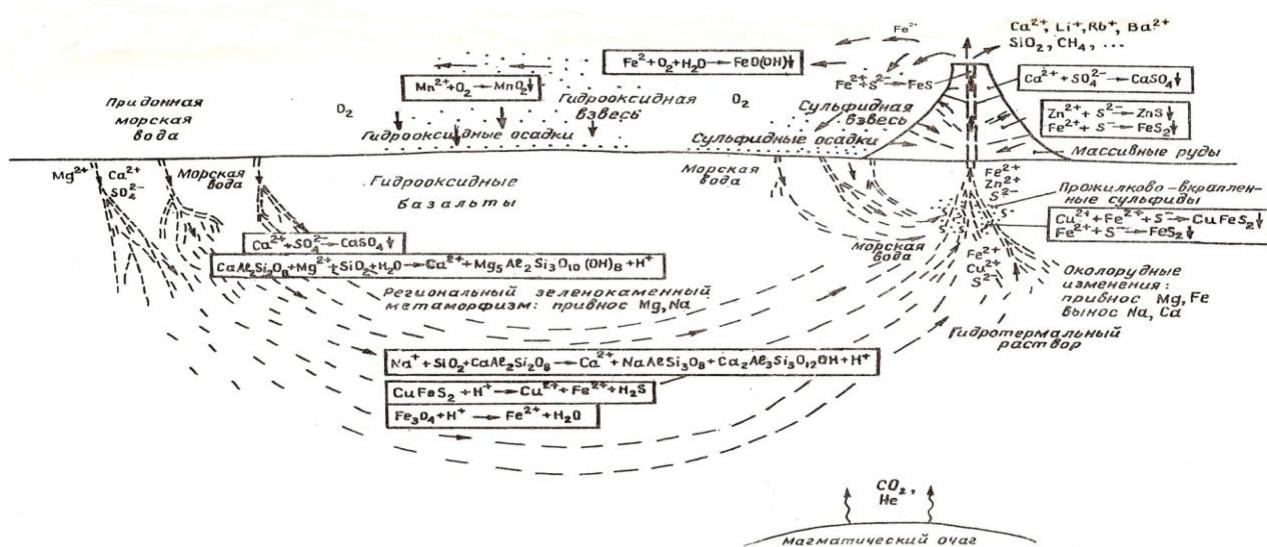 Ca²⁺, Li⁺, Rb⁺, Ba²⁺
SiO₂, CH₄, ...
Fe²⁺
Fe²⁺+O₂+H₂O → FeO(OH)↓
Mn²⁺+O₂ → MnO₂↓
Fe²⁺+S²⁻ → FeS
Ca²⁺+SO₄²⁻ → CaSO₄↓
Zn²⁺ + S²⁻ → ZnS↓
Fe²⁺ + S⁻ → FeS₂↓
Придонная
морская
вода
O₂
Гидрооксидная
взвесь
O₂
Сульфидная
взвесь
Гидрооксидные осадки
Сульфидные осадки
Массивные руды
Mg²⁺
Ca²⁺
SO₄²⁻
Морская
вода
Гидрооксидные
базальты
Морская
вода
Fe²⁺
Zn²⁺
S²⁻
Прожилково-вкраплен-
ные сульфиды
Cu²⁺+Fe²⁺+S⁻ → CuFeS₂↓
Fe²⁺+S⁻ → FeS₂↓
S S
S S
Ca²⁺+SO₄²⁻ → CaSO₄↓
CaAl₂Si₂O₈+Mg²⁺+SiO₂+H₂O → Ca²⁺+Mg₅Al₂Si₃O₁₀(OH)₈+H⁺
морская
вода
Fe²⁺
Cu²⁺
S²⁻
Региональный зеленокаменный
метаморфизм: привнос Mg, Na
Околорудные
изменения:
привнос Mg, Fe
вынос Na, Ca
Гидротермальный
раствор
Na⁺+SiO₂+CaAl₂Si₂O₈ → Ca²⁺+NaAlSi₃O₈+Ca₂Al₃Si₃O₁₂OH+H⁺
CuFeS₂+H⁺ → Cu²⁺+Fe²⁺+H₂S
Fe₃O₄+H⁺ → Fe²⁺+H₂O
CO₂,
He
Магматический очаг